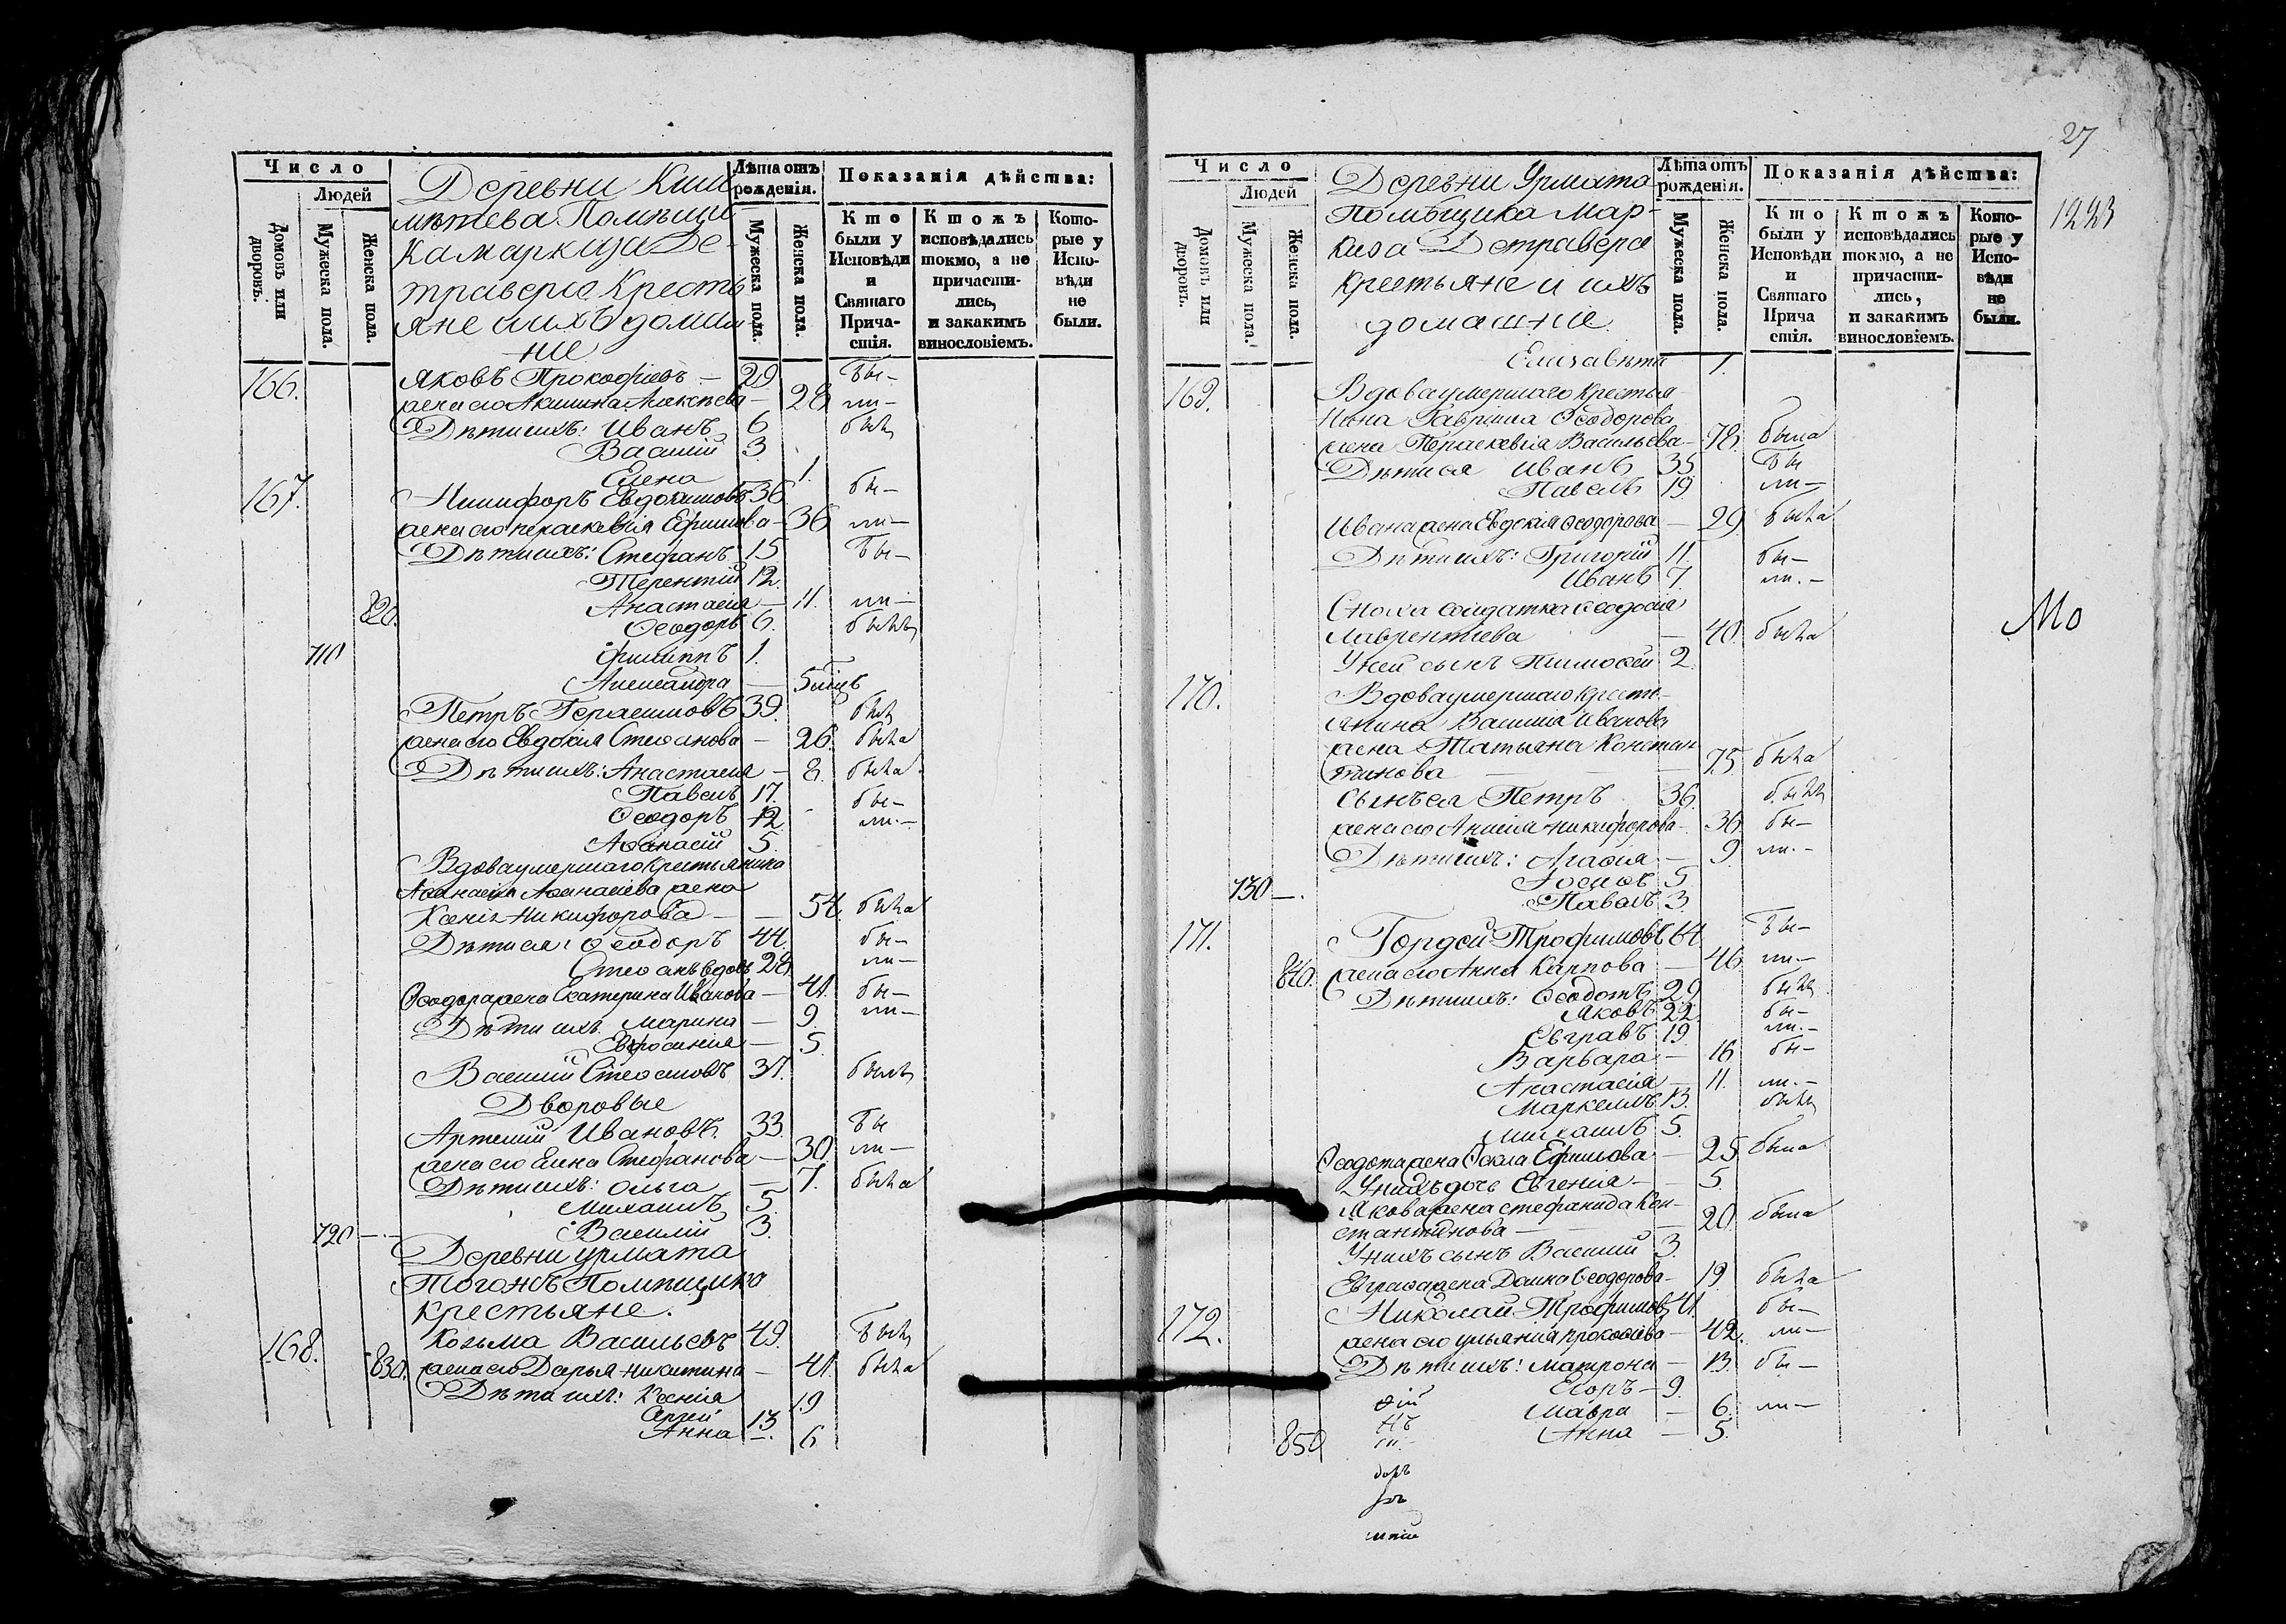 Число
Людей
Домовъ или дворовъ.
Мужеска пола.
Женска пола.
Деревни Киш
мѣтева Помѣщи
ка маркиза Де-
траверсе Кресть
яне и ихъ домаш
ніе
Лѣта отъ рожденія.
Мужеска пола.
Женска пола.
Показанія дѣйства:
Кто были у Исповѣди и Святаго Прича-стія.
Ктожъ исповѣдались токмо, а не причасти-лись, и закакимъ винословіемъ.
Кото-рые у Испо-вѣди не были.
166. Яковъ Прокофіевъ — 29 бы-
жена его Акилина Алексѣева — 28 ли-
Дѣти ихъ: Иванъ 6 былъ
Василій 3.
Елена 1.
167. Никифоръ Евдокимовъ 36 бы-
жена его Параскевія Ефимова — 36 ли-
Дѣти ихъ: Стефанъ 15 бы-
Терентій 12.
820. Анастасія — 11. ли-
Ѳеодоръ 6. былъ
710 Филиппъ 1.
Александра — 5 мѣсц
Петръ Герасимовъ 39. былъ
жена его Евдокія Стеѳанова — 26. была
Дѣти ихъ: Анастасія — 8. была
Павелъ 17. бы-
Ѳеодоръ 12 ли-
Аѳанасій 5.
Вдова умершаго Крестьянина
Аѳанасія Аѳанасіева жена
Ксенія Никифорова — — 54. была
Дѣти ея: Ѳеодоръ 44. бы-
Стеѳанъ вдовъ 28 ли-
Ѳеодора жена Екатерина Иванова — 41. бы-
Дѣти ихъ Марина — 9 ли-
Евфросинія — 5.
Василій 37. былъ
Дворовые
Артемій Ивановъ. 33. бы
жена его Елена Стефанова — 30. ли-
Дѣти ихъ: Ольга — 7. была
Михаилъ 5.
720 — Василій 3.
Деревни Урмата
Тогожъ Помѣщика
Крестьяне.
168. Козьма Васильевъ 49. былъ
830. жена его Дарья Никитина — 41. была
Дѣти ихъ: Ксенія 19
Сергей 13
Анна — 6
27
1223
Число
Людей
Домовъ или дворовъ.
Мужеска пола.
Женска пола
Деревни Урмата
Помѣщика Мар-
киза Детраверсе
Крестьяне и ихъ
домашніе.
Лѣта отъ рожденія.
Мужеска пола.
Женска пола.
Показанія дѣйства:
Кто были у Исповѣди и Святаго Прича стія.
Ктожъ исповѣдались токмо, а не причасти-лись, и закакимъ винословіемъ.
Кото-рые у Испо-вѣди не были.
Елизавѣта 1.
169. Вдова умершаго Крестья-
нина Гавріила Ѳеодорова
жена Параскевія Васильева — 78. была
Дѣти ея Иванъ 35 бы
Павелъ 19. ли-
Ивана жена Евдокія Ѳеодорова — 29. была
Дѣти ихъ: Григорій 11. бы-
Иванъ 7. ли.-
Сноха солдатка Ѳеодосія
Лаврентіева — 40. была
У ней сынъ Тимоѳей 2.
Мо
170. Вдова умершаго кресть-
янина Василія Иванова
жена Татьяна Констан
тинова — — — 75 была
Сынъ ея Петръ 36. былъ
жена его Анисія Никифорова — 36. бы-
Дѣти ихъ: Агаѳія — 9. ли.-
Іосифъ 5
730 —. Павелъ 3
171. Гордей Трофимовъ бы-
840. жена его Анна Карпова — 46 ли-
Дѣти ихъ: Ѳеодотъ 29. былъ
Яковъ 22. бы-
Евграѳъ 19. ли.-
Варвара — 16 бы-
Анастасія — 11. ли.-
Маркеллъ 13. былъ
Михаилъ 5.
Ѳеодота жена Ѳекла Ефимова — 25 была
У нихъ дочь Евгенія — — 5.
Якова жена Стефанида Кон-
стантинова — — 20. была
У нихъ сынъ Василій 3.
Евграѳа жена Домна Ѳеодорова — 19. была
172. Николай Трофимовъ 41. бы-
жена его Ульянія Прокофіева — 42. ли-
Дѣти ихъ: Матрона — 13. бы-
Егоръ — 9.
Мавра — 6. ли-
850 Анна — 5.